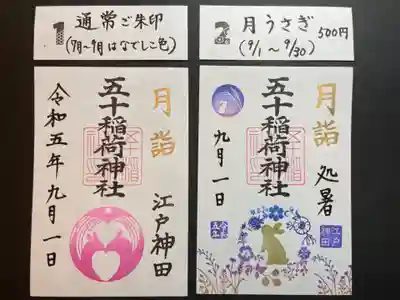 1 通常ご朱印
(7月〜9月はなでしこ色)
月詣
五十稲荷神社
江戸神田
令和五年九月一日
2 月うさぎ 500円
(9/1〜9/30)
月詣
処暑
五十稲荷神社
九月一日
江戸神田